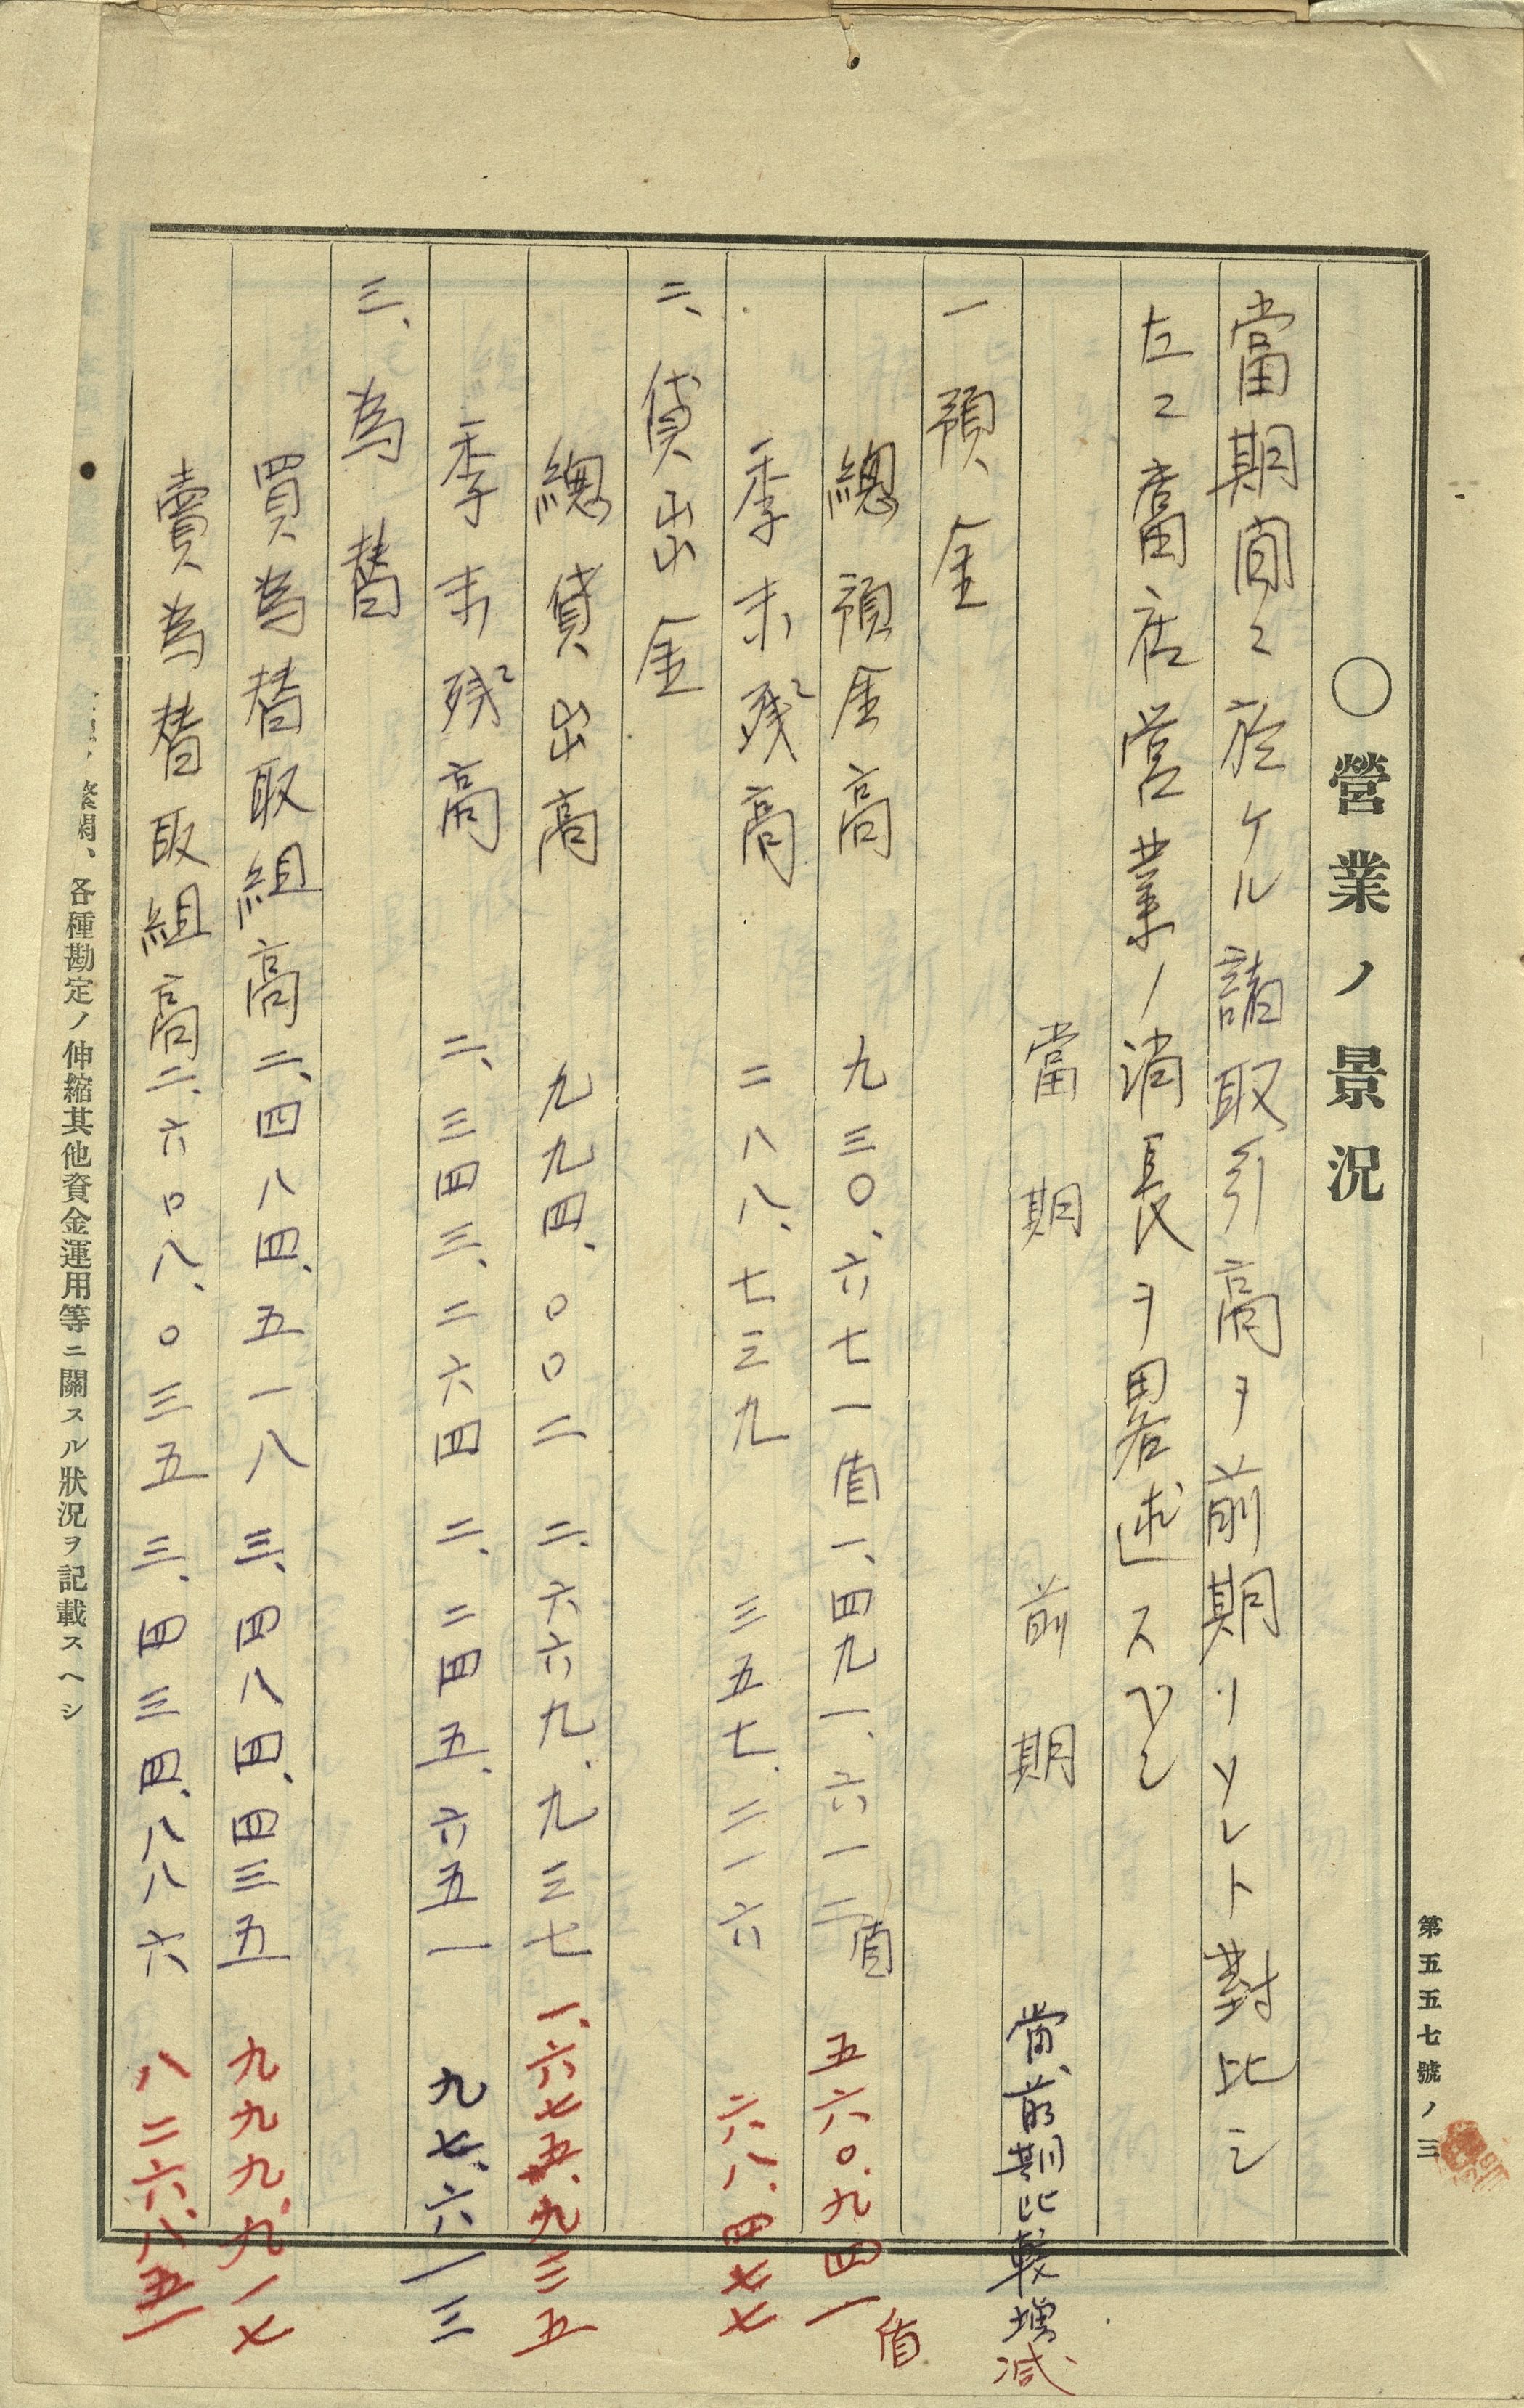 第五五七號ノ三
〇營業ノ景況
當期間ニ於ケル諸取引高ヲ前期ノソレト對比シ
左ニ當店営業ノ消長ヲ畧述スベシ
當期 前期 當、前期比較増減
一 預金
總預金高 九三〇、六七一 一、四九一、六一二 五六〇、九四一
季末残高 二八八、七三九 三五七、二一六 六八、四七七
二、貸出金
總貸出高 九九四、〇〇二 二、六六九、九三七 一、六七五、九三五
季末残高 二、三四三、二六四 二、二四五、六五一 九七、六一三
三、為替
買為替取組高 二、四八四、五一八 三、四八四、四三五 九九九、九一七
賣為替取組高 二、六〇八、〇三五 三、四三四、八八六 八二六、八五一
繁閑、各種勘定ノ伸縮其他資金運用等ニ關スル狀況ヲ記載スヘシ